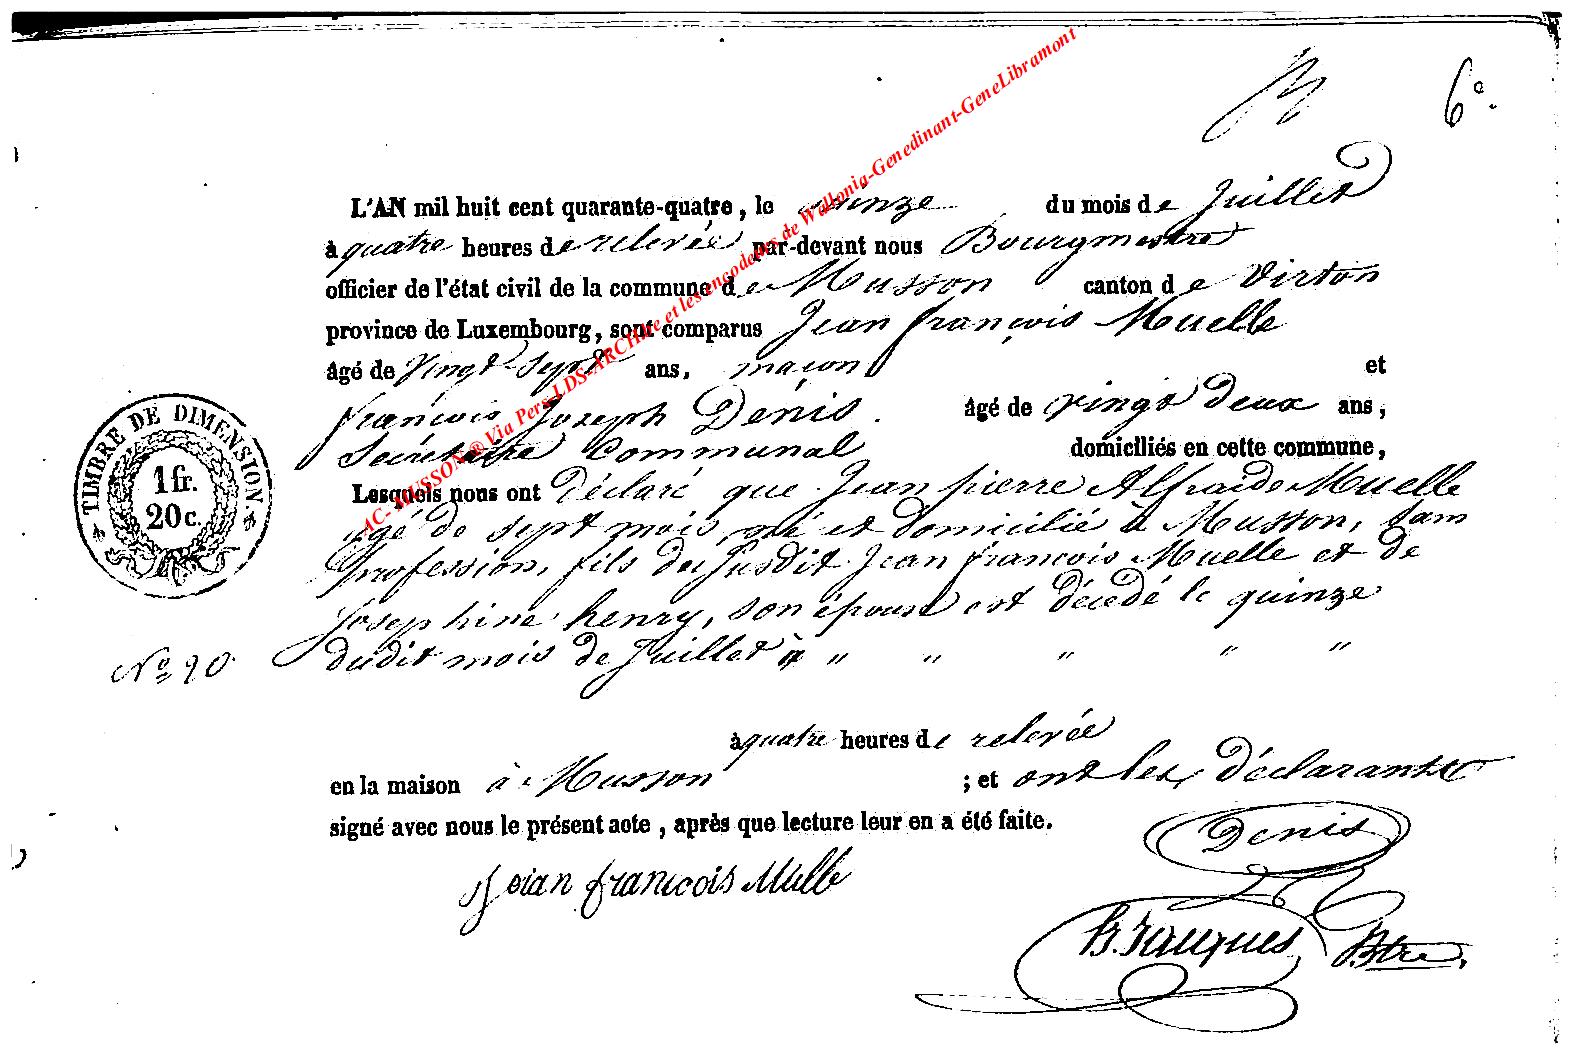 6°.
L'AN mil huit cent quarante-quatre, le quinze du mois de Juillet
à quatre heures de relevée par-devant nous Bourgmestre
officier de l'état civil de la commune de Musson canton de Virton
province de Luxembourg, sont comparus Jean françois Muelle
âgé de Vingt Sept ans, maçon et
françois Joseph Denis. âgé de vingt deux ans,
Sécrétaire Communal domiciliés en cette commune,
Lesquels nous ont déclaré que Jean pierre Muelle
agé de sept mois, né et domicilié à Musson, sans
profession, fils du Susdit Jean françois Muelle et de
Josephine henry, son épouse est décédé le quinze
dudit mois de Juillet à " " " " "
à quatre heures de relevée
en la maison à Musson ; et ont les déclarants
signé avec nous le présent acte, après que lecture leur en a été faite.
Jean francois Mulle
Denis
Btre.
TIMBRE DE DIMENSION.
1 fr.
20 c.
N° 20
AC- MUSSON ® Via Pers-LDS-ARCHive et les encodeurs de Wallonia-Genedinant-GeneLibramont